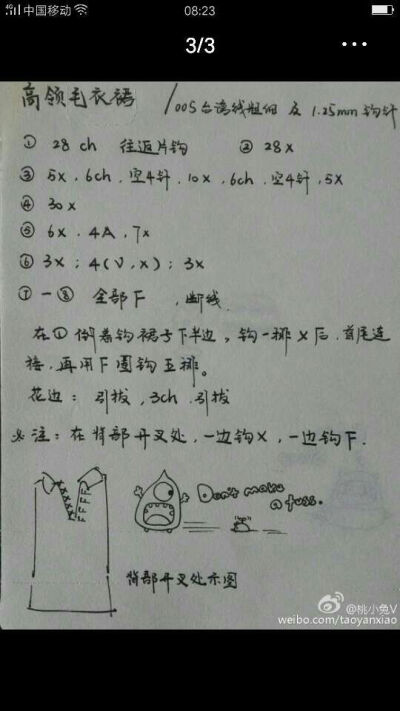 中国移动 08:23
3/3
高领毛衣裙 /005台湾线粗细 及 1.25mm钩针
① 28 ch 往返片钩 ② 28x
③ 5x, 6ch, 空4针, 10x, 6ch, 空4针, 5x
④ 30x
⑤ 6x, 4A, 7x
⑥ 3x; 4(V, x); 3x
⑦ — ⑧ 全部F, 断线
在①倒着钩裙子下半边, 钩一排X后, 首尾连
接, 再用F圈钩五排。
花边: 引拔, 3ch, 引拔
注: 在背部开叉处, 一边钩X, 一边钩F.
XXXXX FFFF
Don't make
a fuss.
背部开叉处示图
@桃小兔V
weibo.com/taoyanxiao